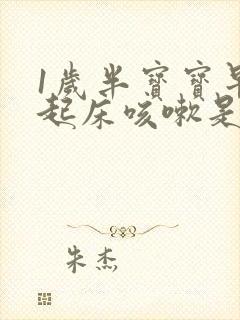 1歲半寶寶早
起床咳嗽是
朱杰